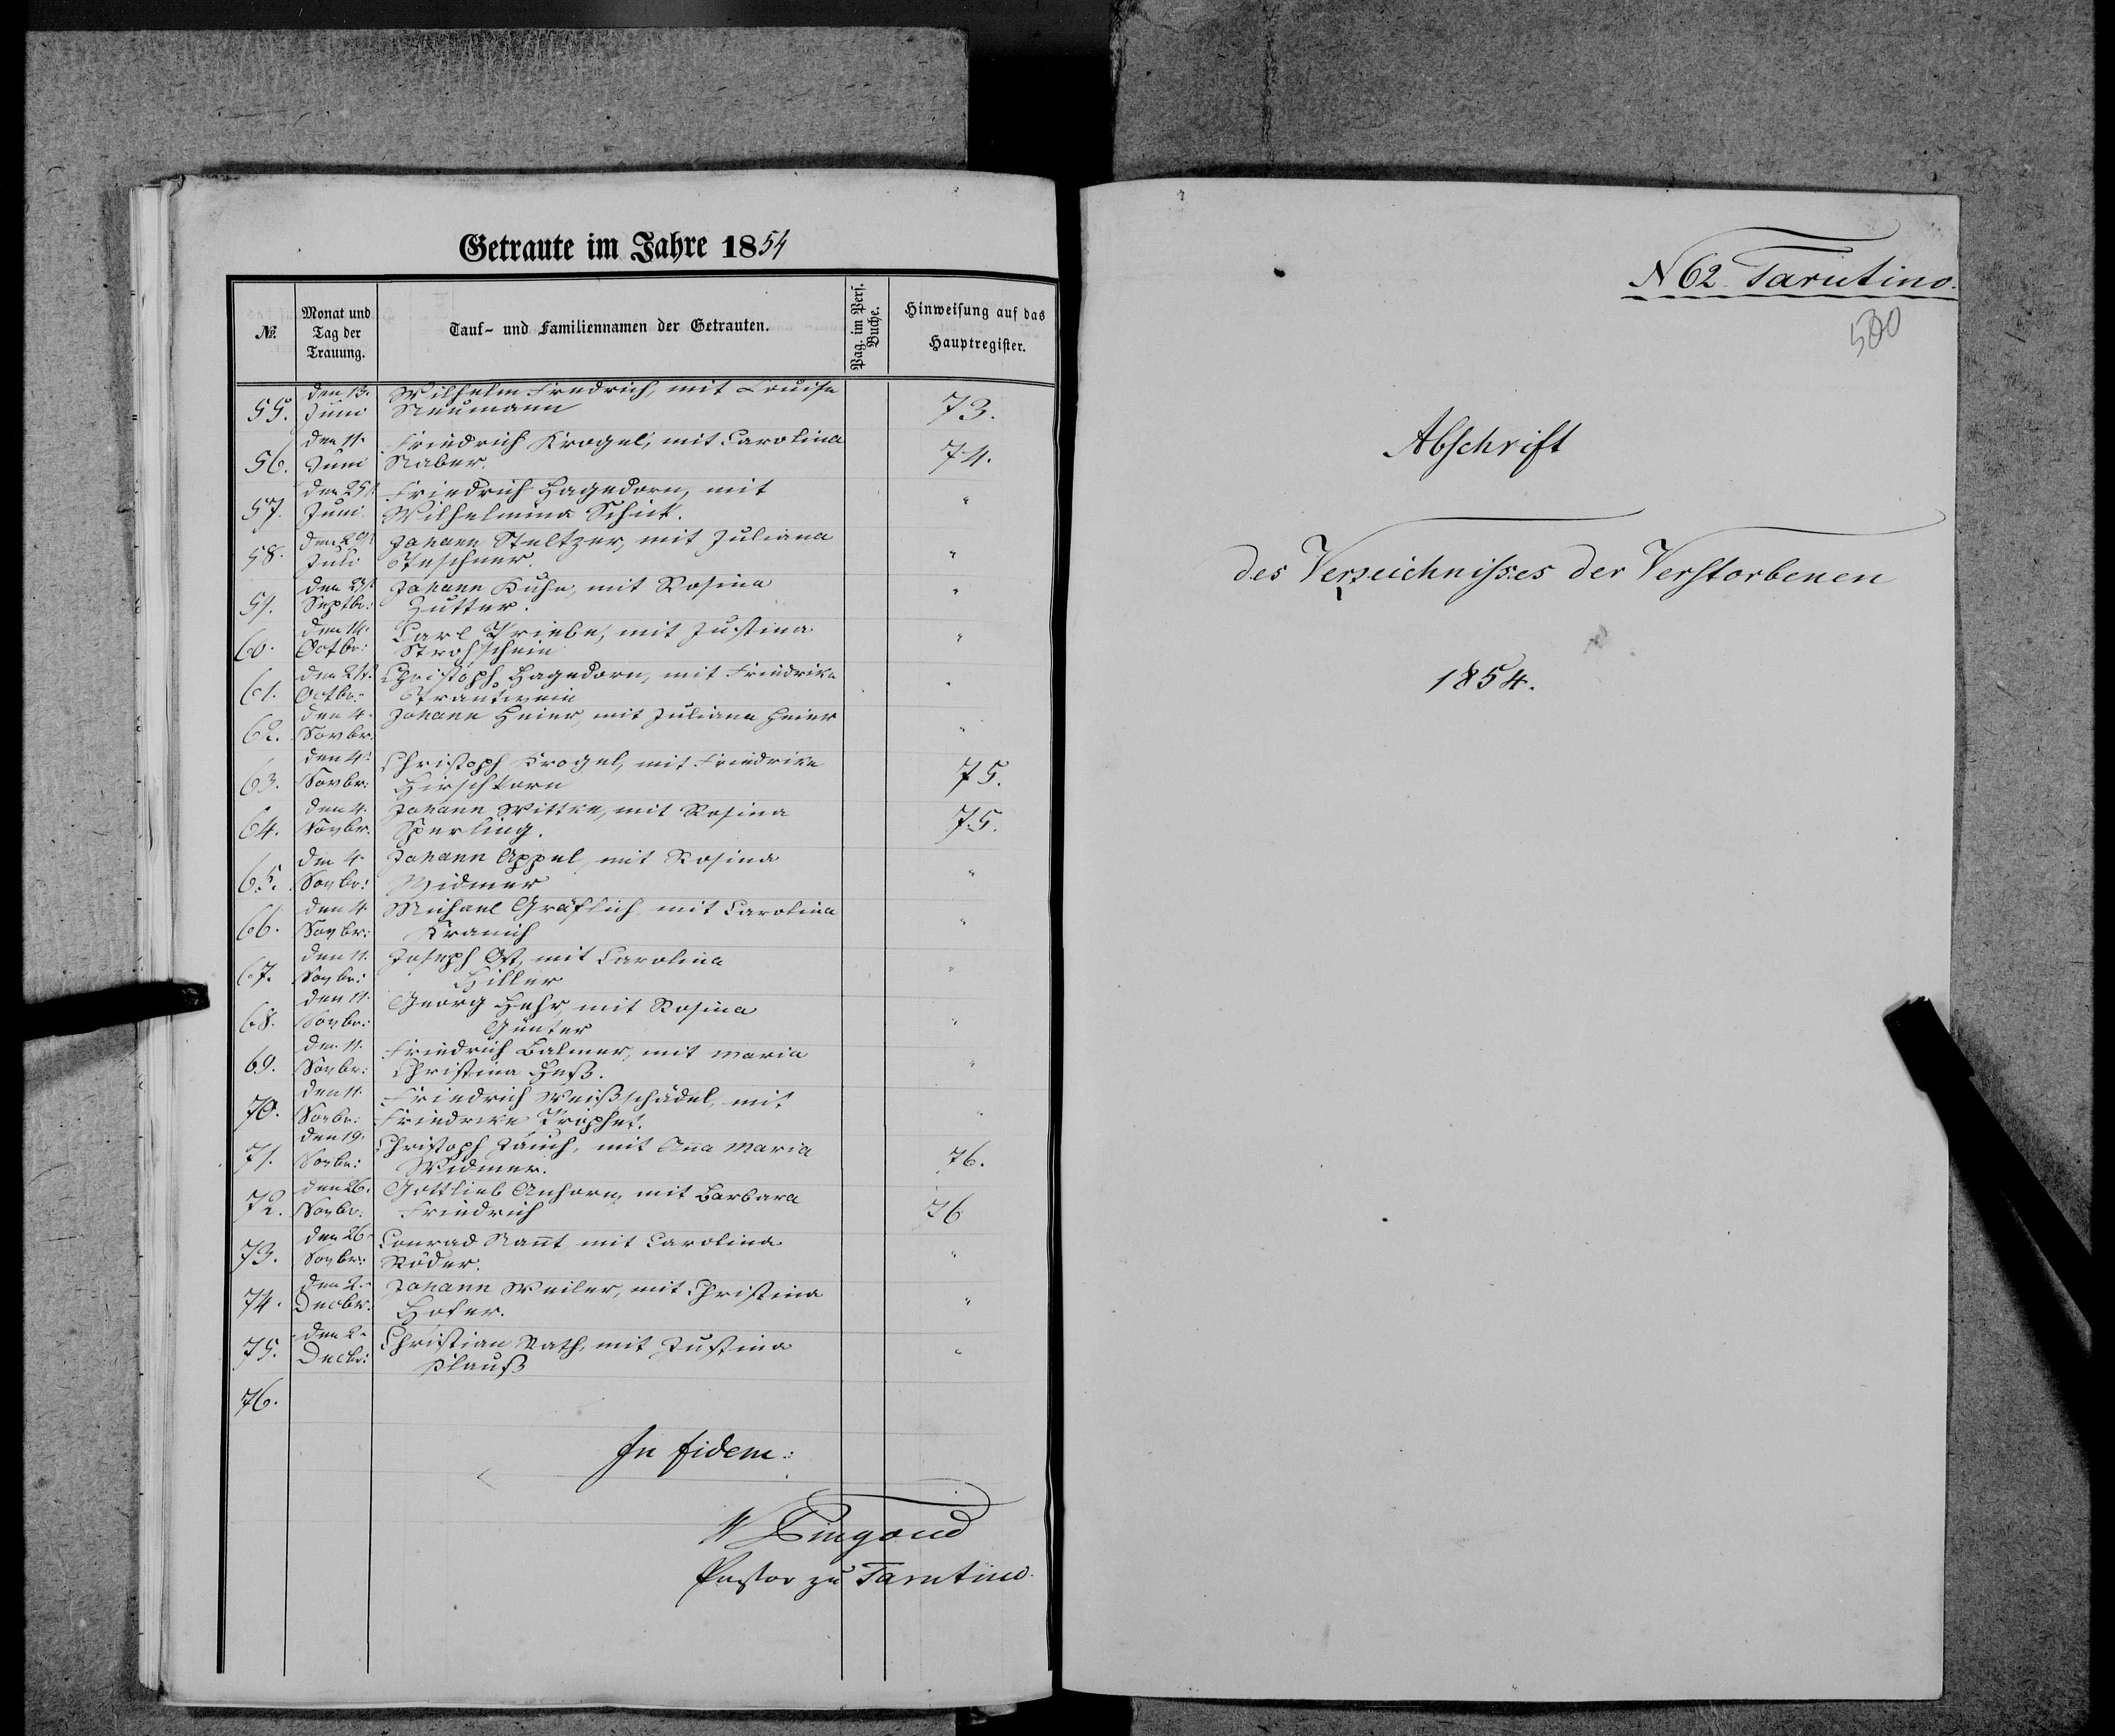 Getraute im Jahre 1854
No. Monat und Tag der Trauung. Tauf- und Familiennamen der Getrauten. Pag. im Pers. Buche. Hinweisung auf das Hauptregister.
den 13. Wilhelm Friedrich, mit Louisa
55. Juni Neumann 73.
den 11. Friedrich Krogel, mit Carolina
56. Juni Naber. 74.
den 25. Friedrich Hagedorn, mit
57. Juni Wilhelmina Schick. "
Johann Steltzer, mit Juliana
58. Juli Teschner. "
Johann Kuhn, mit Rosina
59. Septbr: Zutter. "
den 14. Carl Priebe, mit Justina
60. Octbr: Strohschein "
Christoph Hagedorn, mit Friedrika
61. Octbr: Trantwein "
den 4. Johann Heier, mit Juliana Heier
62. Novbr. "
den 4. Christoph Krogel, mit Friedrika
63. Novbr: Hirschkorn 75.
den 4. Johann Wittke, mit Rosina
64. Novbr. Sperling. 75.
den 4. Johann Appel, mit Rosina
65. Novbr: Widmer "
den 4. Michael Gräflich, mit Carolina
66. Novbr: Kranich "
den 11. Joseph Ost, mit Carolina
67. Novbr: Hiller "
den 11. Georg Hehr, mit Rosina
68. Novbr: Günter "
den 11. Friedrich Balmer, mit Maria
69. Novbr: Christina Heß. "
den 11. Friedrich Weißschädel, mit
70. Novbr: Friedrike Prophet. "
den 19. Christoph Jauch, mit Anna Maria
71. Novbr: Widmer. 76.
den 26. Gottlieb Anhorn, mit Barbara
72. Novbr: Friedrich 76
den 26. Conrad Nannt mit Carolina
73. Novbr: Röder. "
den 2. Johann Weiler, mit Christina
74. Decbr. Hofer. "
den 2. Christian Rath, mit Justina
75. Decbr: Klauß "
76.
In fidem:
Pingoud
Pastor zu Tarutino.
N 62 Tarutino.
500
Abschrift
des Verzeichnisses der Verstorbenen
1854.